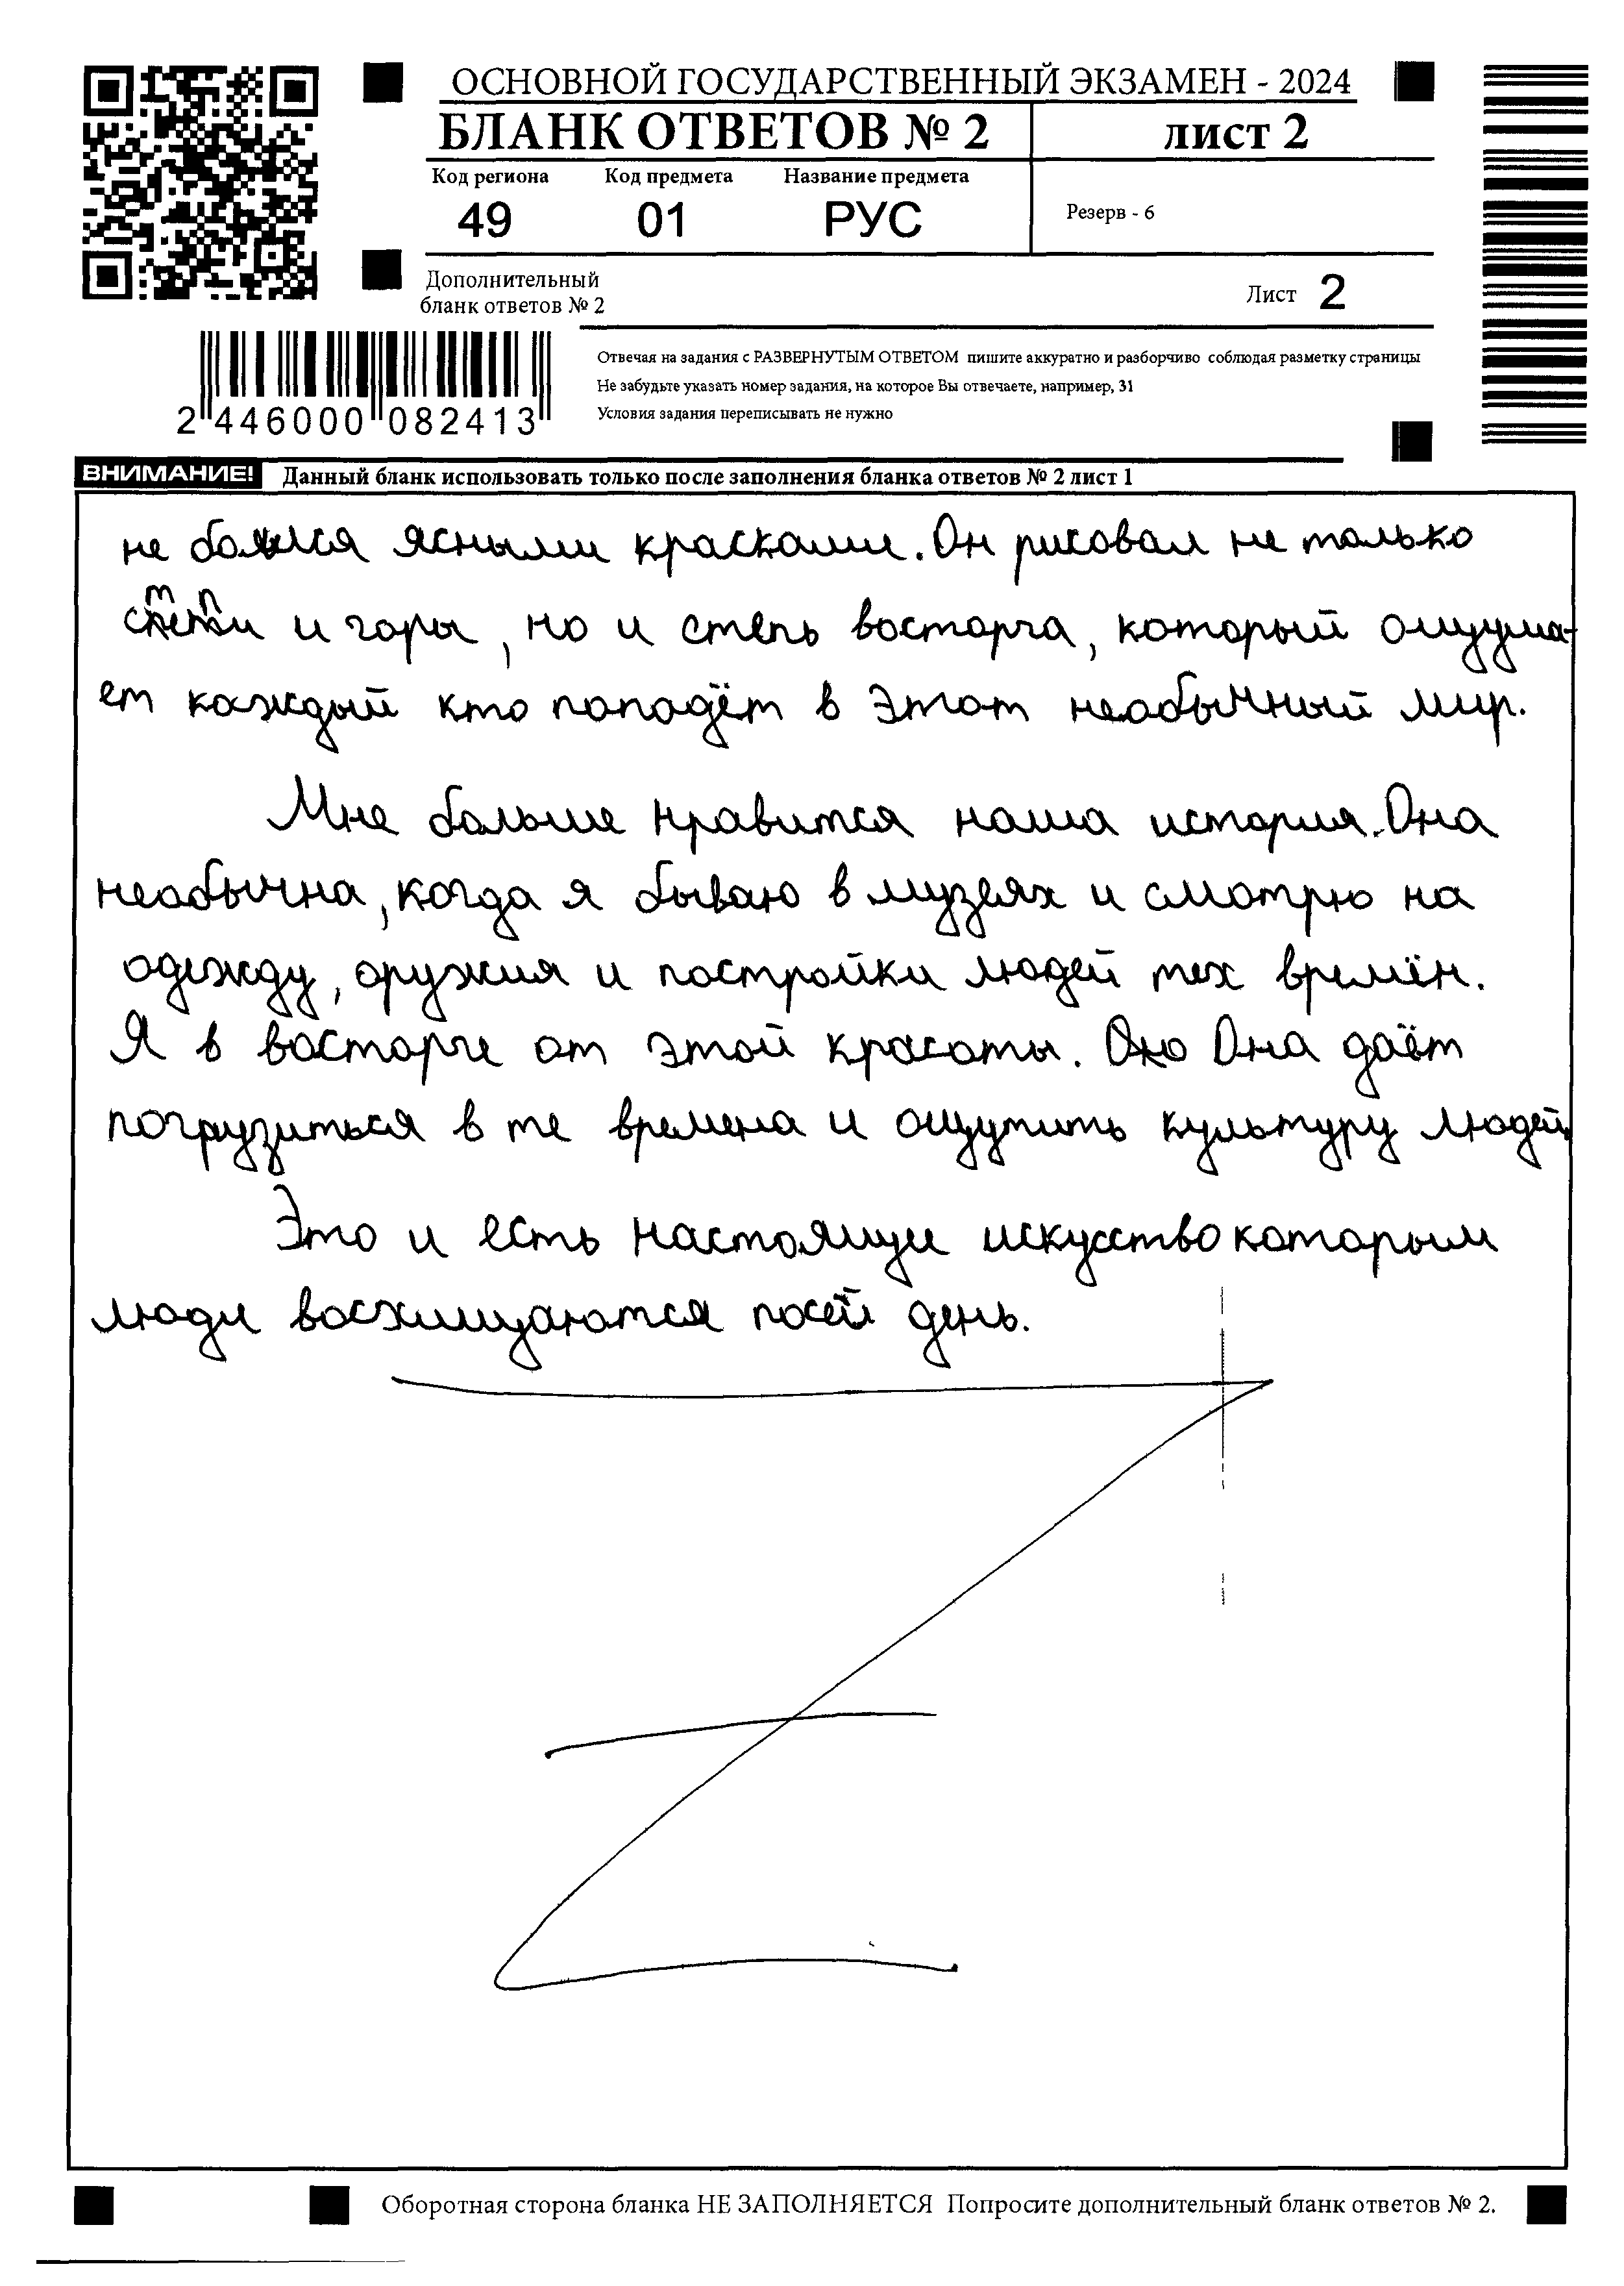 ОСНОВНОЙ ГОСУДАРСТВЕННЫЙ ЭКЗАМЕН - 2024
БЛАНК ОТВЕТОВ № 2
лист 2
Код региона
Код предмета
Название предмета
49
01
РУС
Резерв - 6
Дополнительный
бланк ответов № 2
Лист 2
Отвечая на задания с РАЗВЕРНУТЫМ ОТВЕТОМ пишите аккуратно и разборчиво соблюдая разметку страницы
Не забудьте указать номер задания, на которое Вы отвечаете, например, 31
Условия задания переписывать не нужно
2 446000 082413
ВНИМАНИЕ! Данный бланк использовать только после заполнения бланка ответов № 2 лист 1
не боялся ясными красками. Он рисовал не только
степи и горы, но и степь восторга, который ощуща-
ет каждый кто попадёт в этот необычный мир.
Мне больше нравится наша история. Она
необычна, когда я бываю в музеях и смотрю на
одежду, оружия и постройки людей тех времён.
Я в восторге от этой красоты. Она даёт
погрузиться в те времена и ощутить культуру людей.
Это и есть настоящие искусство которым
люди восхищаются посей день.
Оборотная сторона бланка НЕ ЗАПОЛНЯЕТСЯ Попросите дополнительный бланк ответов № 2.